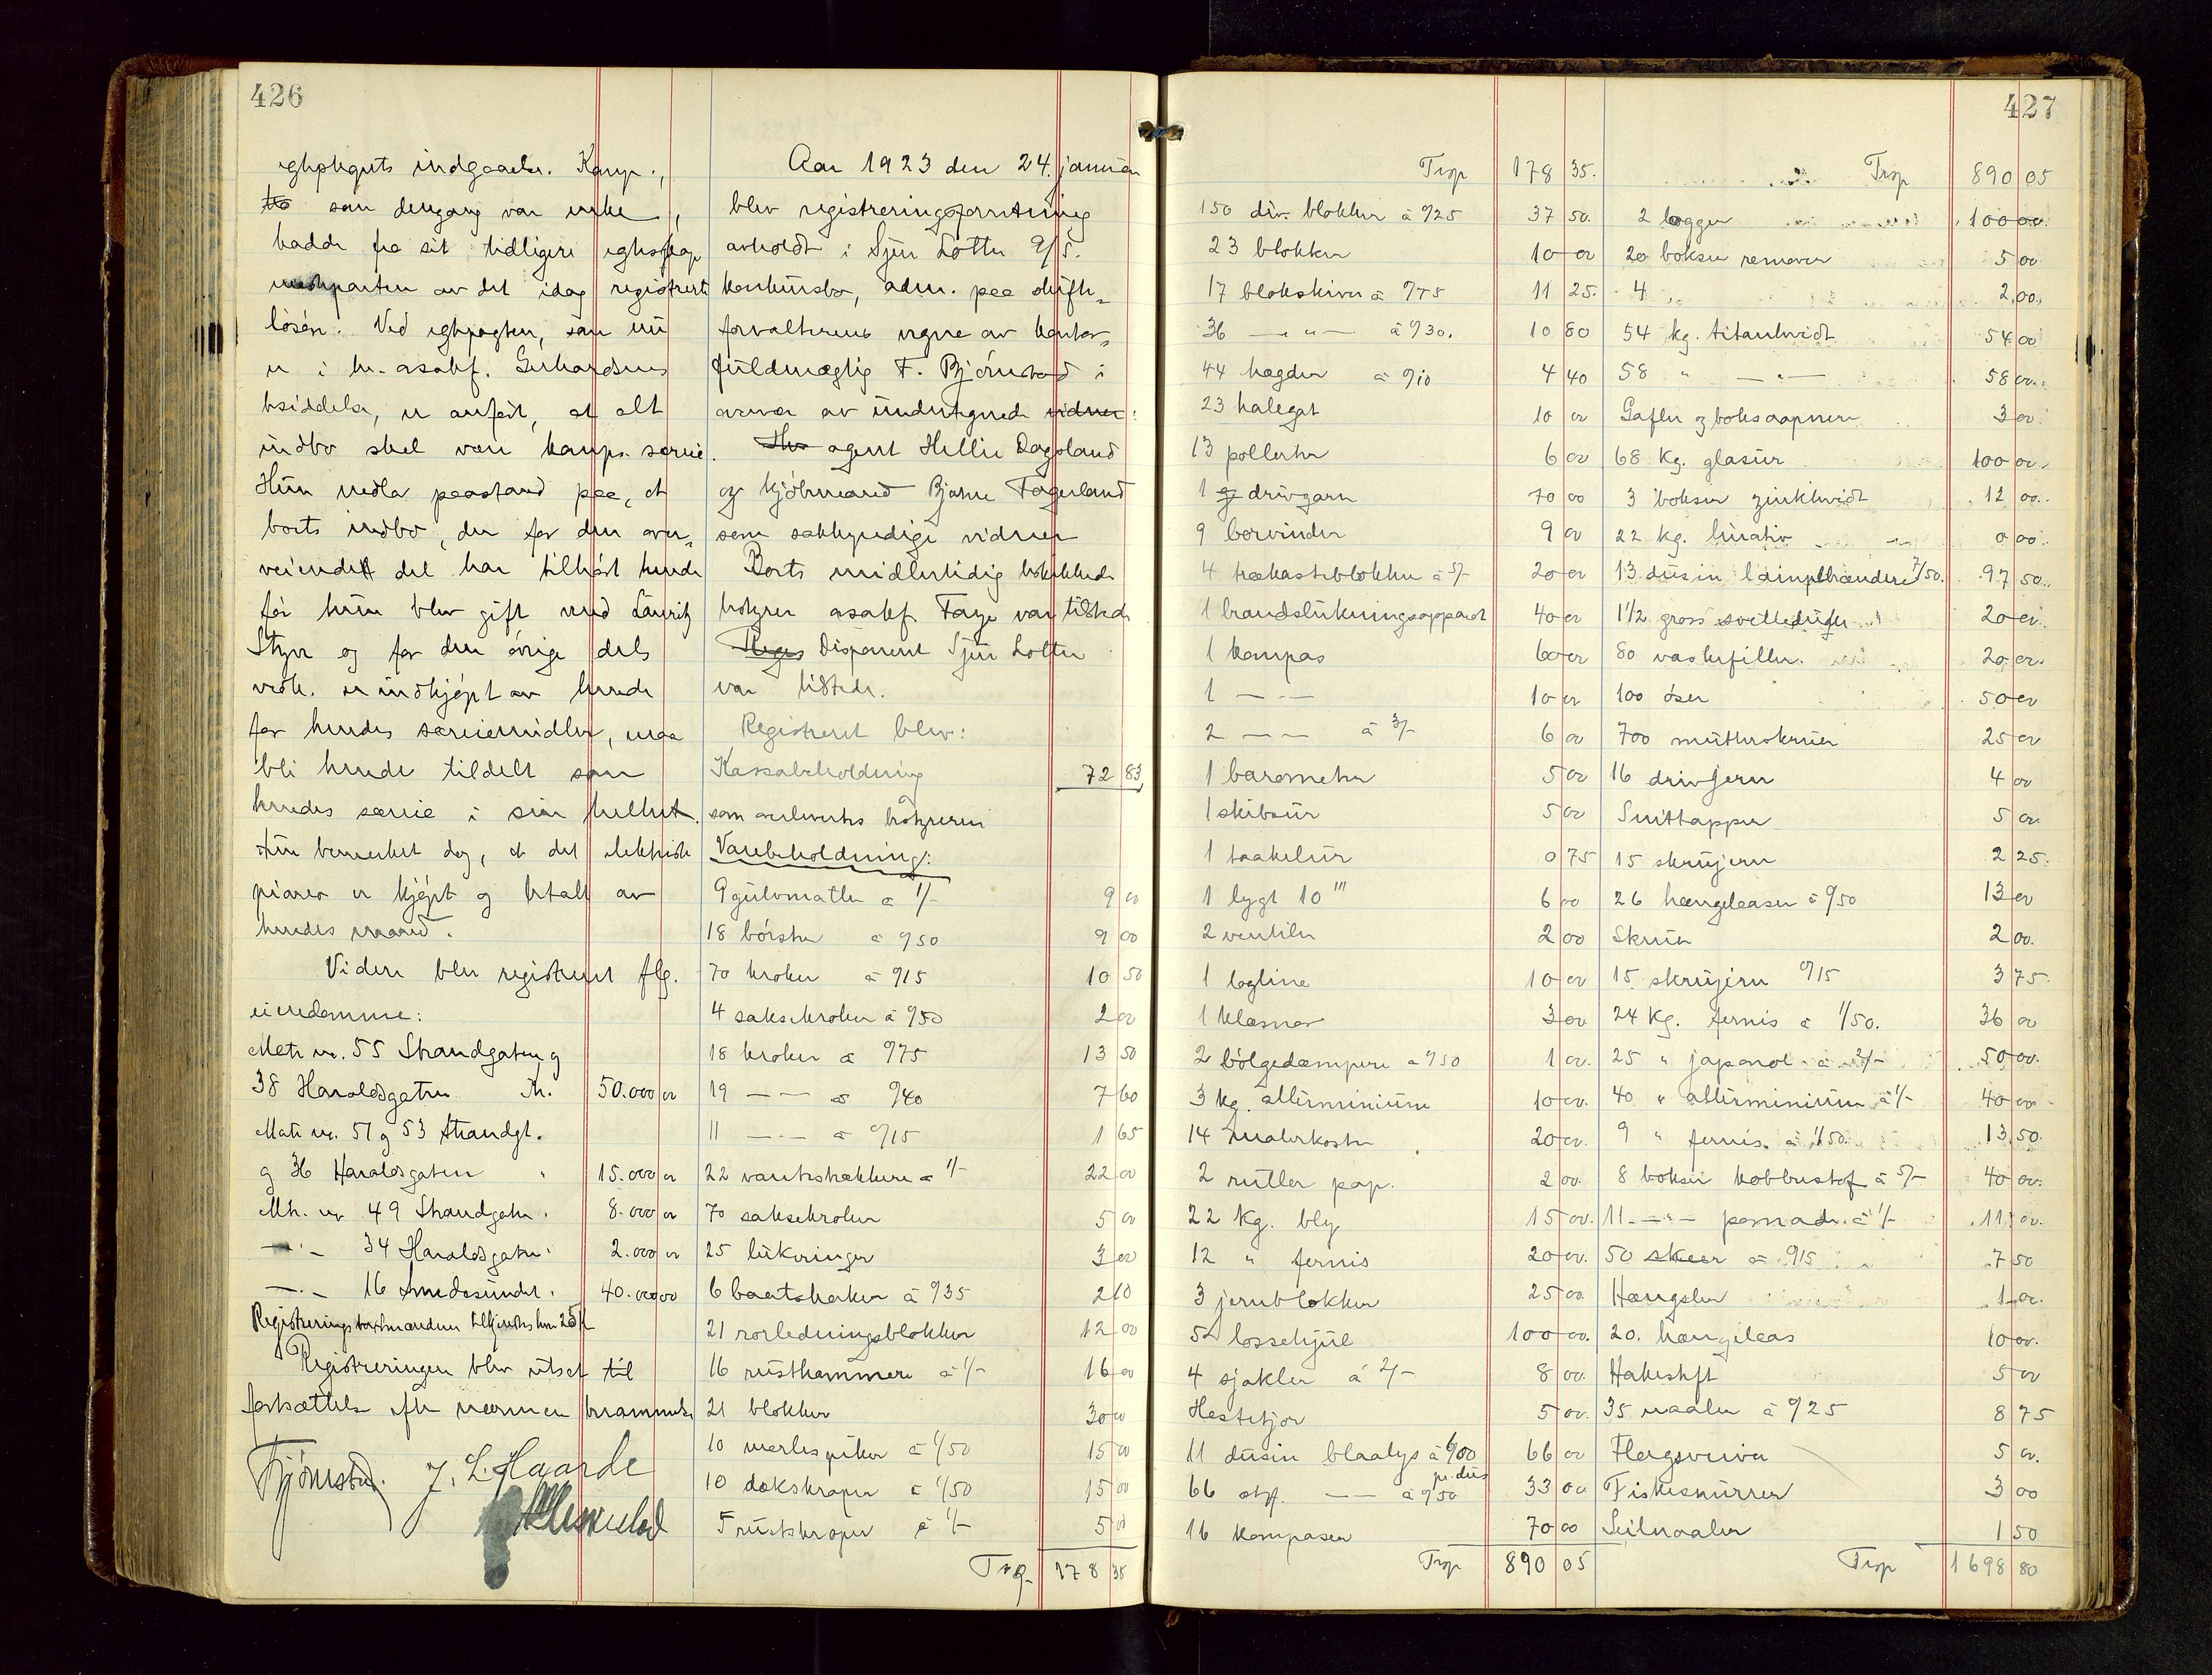 426
egteskapets indgaaelse. Kamp.,
som dengang var enke,
hadde fra sit tidligere egteskap
mesteparten av det idag registrerte
løsøre. Ved egtepagten, som nu
er i hr. o.sakf. Gerhardsens
besiddelse, er anført, at alt
indbo skal være Kamps særeie.
Hun nedla paastand paa, at
boets indbo, der for den over-
veiendet del har tilhørt hende
før hun blev gift med Lauritz
Styve og for den øvrige dels
vedk. er indkjøpt av hende
for hendes særeiemidler, maa
bli hende tildelt som
hendes særeie i sin helhet.
Hun bemerket dog, at det elektriske
piano er kjøpt og betalt av
hendes mand.
Videre blev registrert flg.
eiendomme:
Matr. nr. 55 Strandgaten og
38 Haraldsgaten kr. 50.000 00
Matr. nr. 51 og 53 Strandgt.
og 36 Haraldsgaten " 15.000 00
Mtr. nr. 49 Strandgaten " 8.000 00
—"— 34 Haraldsgaten " 2.000 00
—"— 16 Smedesundet " 40.000 00
Registreringsformændene tilkjendtes hver 25/-
Registreringen blev utsat til
fortsættelse efter nærmere berammelse
Bjørnstad. J. L. Haarde
Aar 1923 den 24. januar
blev registreringsforretning
avholdt i Sjur Lothe A/S.
konkursbo, adm. paa skifte-
forvalterens vegne av kontor-
fuldmægtig F. Bjørnstad i
overvær av undertegnede vidner:
agent Hellie Dagsland
og kjøbmand Bjarne Fagerland
som sakkyndige vidner
Boets midlertidig beskikkede
bestyrer o.sakf. Faye var tilstede
Disponent Sjur Lothe
var tilstede.
Registrert blev:
Kassabeholdning 72 83
som overlevertes bestyreren
Varebeholdning:
9 gulvmatter a 1/- 9 00
18 børster a 0/50 9 00
70 kroker a 0/15 10 50
4 saksekroker a 0/50 2 00
18 kroker a 0/75 13 50
19 —"— a 0/40 7 60
11 —"— a 0/15 1 65
22 vantestrækkere a 1/- 22 00
70 saksekroker 5 00
25 lukeringer 3 00
6 baatshaker a 0/35 2 10
21 rorledningsblokker 12 00
16 rusthammere a 1/- 16 00
21 blokker 30 00
10 merlespiker a 1/50 15 00
10 dekskraper a 1/50 15 00
5 rustskraper a 1/- 5 00
Trsp. 178 35
427
Trsp 178 35.
150 div. blokker a 0/25 37 50.
23 blokker 10 00
17 blokskiver a 0/75 11 25.
36 —"— a 0/30. 10 80
44 hægder a 0/10 4 40
23 halegat 10 00
13 pollerter 6 00
1 drivgarn 70 00
9 borvinder 9 00
4 trekasteblokker a 5/- 20 00
1 brandslukningsapparat 40 00
1 kompas 60 00
1 —"— 10 00
2 —"— a 3/- 6 00
1 barometer 5 00
1 skibsur 5 00
1 taakelur 0 75
1 lygt 10''' 6 00
2 ventiler 2 00
1 logline 10 00
1 klæsnor 3 00
2 bølgedæmpere a 0/50 1 00.
3 kg. alluminium 10 00.
14 malerkoster 20 00.
2 ruller pap. 2 00.
22 kg. bly 15 00.
12 " fernis 20 00.
3 jernblokker 25 00.
5 lossehjul 100 00.
4 sjakler a 2/- 8 00.
Hestetjor 5 00.
11 dusin blaalys a 6/00 pr. dus 66 00
66 stk. —"— a 0/50 33 00
16 kompasser 70 00
Trsp 890 05
Trsp 890 05
2 logger 100 00.
20 bokser remover 5 00
4 " 2,00.
54 kg. titanhvidt 54 00
58 " —"— 58 00.
Gafler og boksaapnere 3 00.
68 kg. glasur 100 00.
3 bokser zinkhvidt 12 00.
22 kg. linativ 0 00.
13 dusin lampebrændere 7/50. 97 50.
1 1/2 gross svelledufer 20 00.
80 vaskefiller. 20 00.
100 øser 50 00
700 mutterskruer 25 00
16 drivjern 4 00
Snittapper 5 00.
15 skrujern 2 25.
26 hængelaaser a 0/50 13 00
Skruer 2 00.
15 skrujern 0/15 3 75.
24 kg. fernis a 1/50. 36 00
25 " japanol a 2/- 50 00.
40 " alluminium a 1/- 40 00
9 " fernis a 1/50. 13 50.
8 bokser kobberstof a 5/- 40 00.
11 —"— pomade a 1/- 11 00.
50 skeer a 0/15 7 50
Hængsler 1 00.
20. hængelaas 10 00.
Hakeskft 5 00
35 naaler a 0/25 8 75
Flagsveiva 5 00.
Fiskesnurrer 3 00
Seilnaaler 1 50
Trsp 1698 80